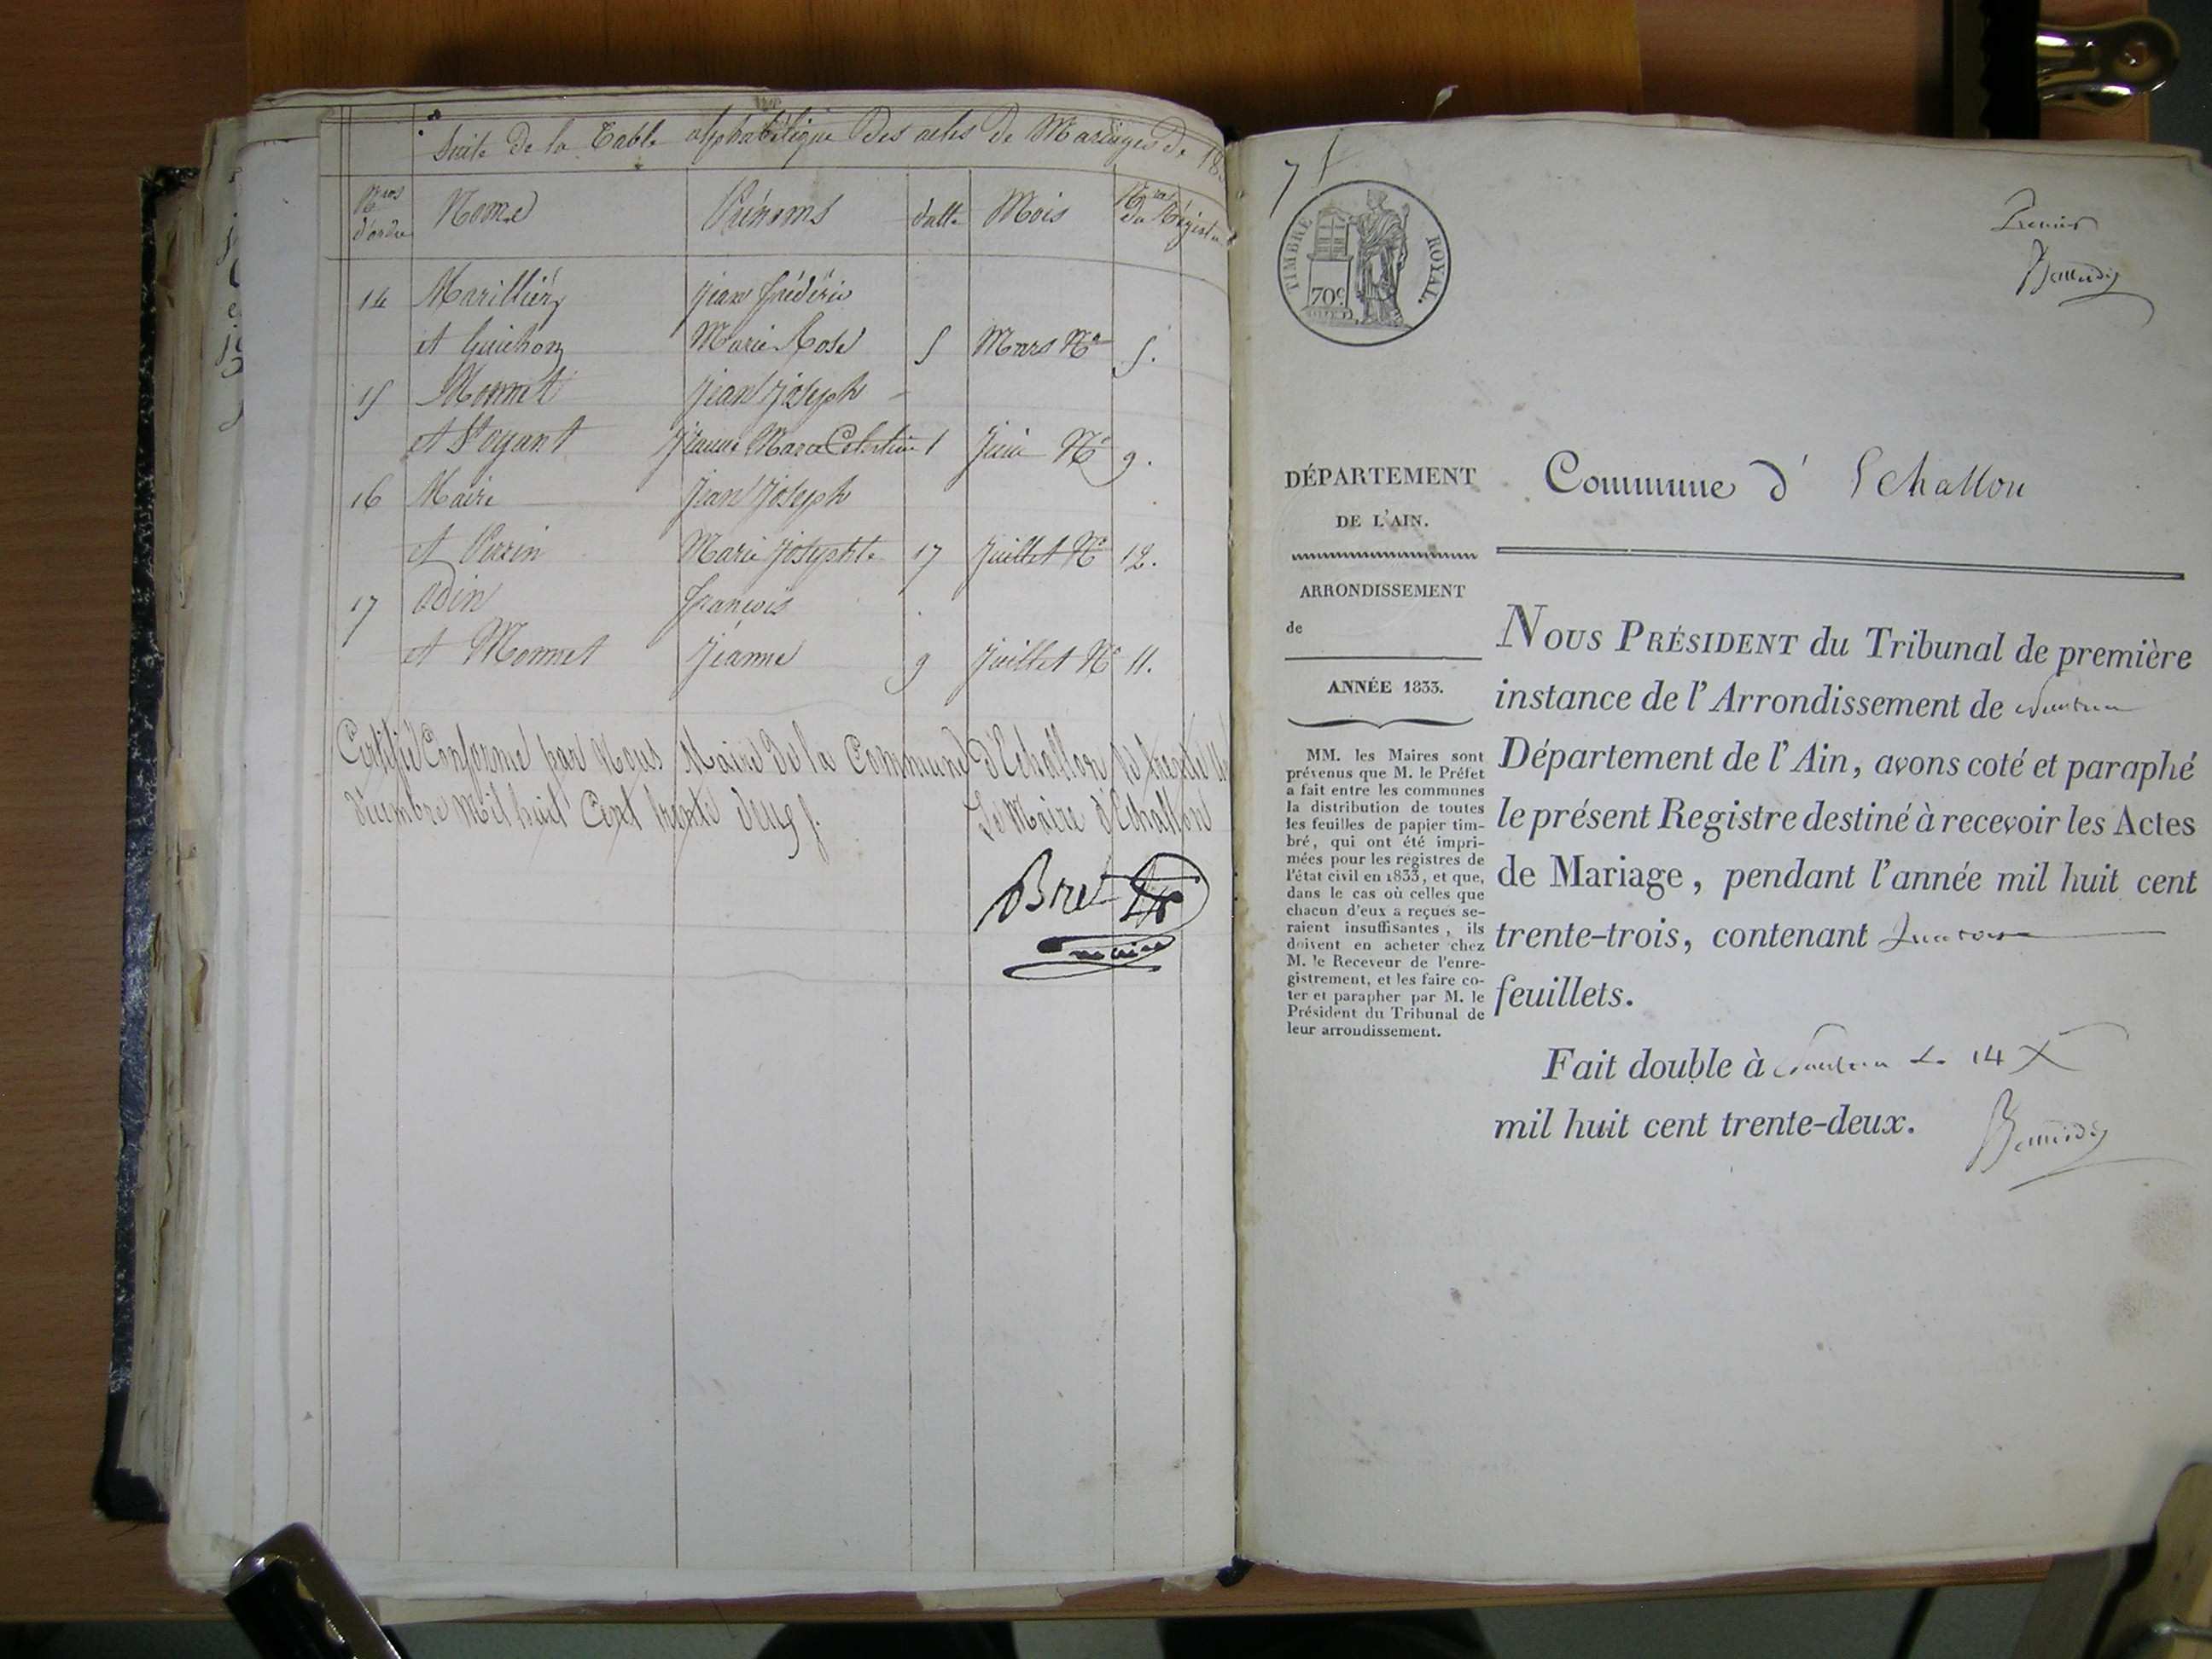 Suite de la Table alphabétique des actes de Mariages de 18
Nros d'ordre Noms Prénoms datte Mois Nros du Régistre
14 Marillier Jean frédéric
et Guichon Marie Rose 5 Mars No 5.
15 Monnet Jean Joseph
et St oyant Jeanne Marie Célestine 1 Juin No 9.
16 Maire Jean Joseph
et Perrin Marie Josephte 17 Juillet No 12.
17 Odin françois
et Monnet Jeanne 9 Juillet No 11.
Certifié Conforme par Nous Maire de la Commune d'Echallon le trente
décembre mil huit Cent trente deux.
Le Maire d'Echallon
Bret
maire
7
TIMBRE ROYAL.
70c
Premier
DÉPARTEMENT
DE L'AIN.
ARRONDISSEMENT
de
ANNÉE 1833.
MM. les Maires sont
prévenus que M. le Préfet
a fait entre les communes
la distribution de toutes
les feuilles de papier tim-
bré, qui ont été impri-
mées pour les registres de
l'état civil en 1833, et que,
dans le cas où celles que
chacun d'eux a reçues se-
raient insuffisantes, ils
doivent en acheter chez
M. le Receveur de l'enre-
gistrement, et les faire co-
ter et parapher par M. le
Président du Tribunal de
leur arrondissement.
Commune d' Echallon
NOUS PRÉSIDENT du Tribunal de première
instance de l'Arrondissement de Nantua
Département de l'Ain, avons coté et paraphé
le présent Registre destiné à recevoir les Actes
de Mariage, pendant l'année mil huit cent
trente-trois, contenant quatorze
feuillets.
Fait double à Nantua le 14 X
mil huit cent trente-deux.